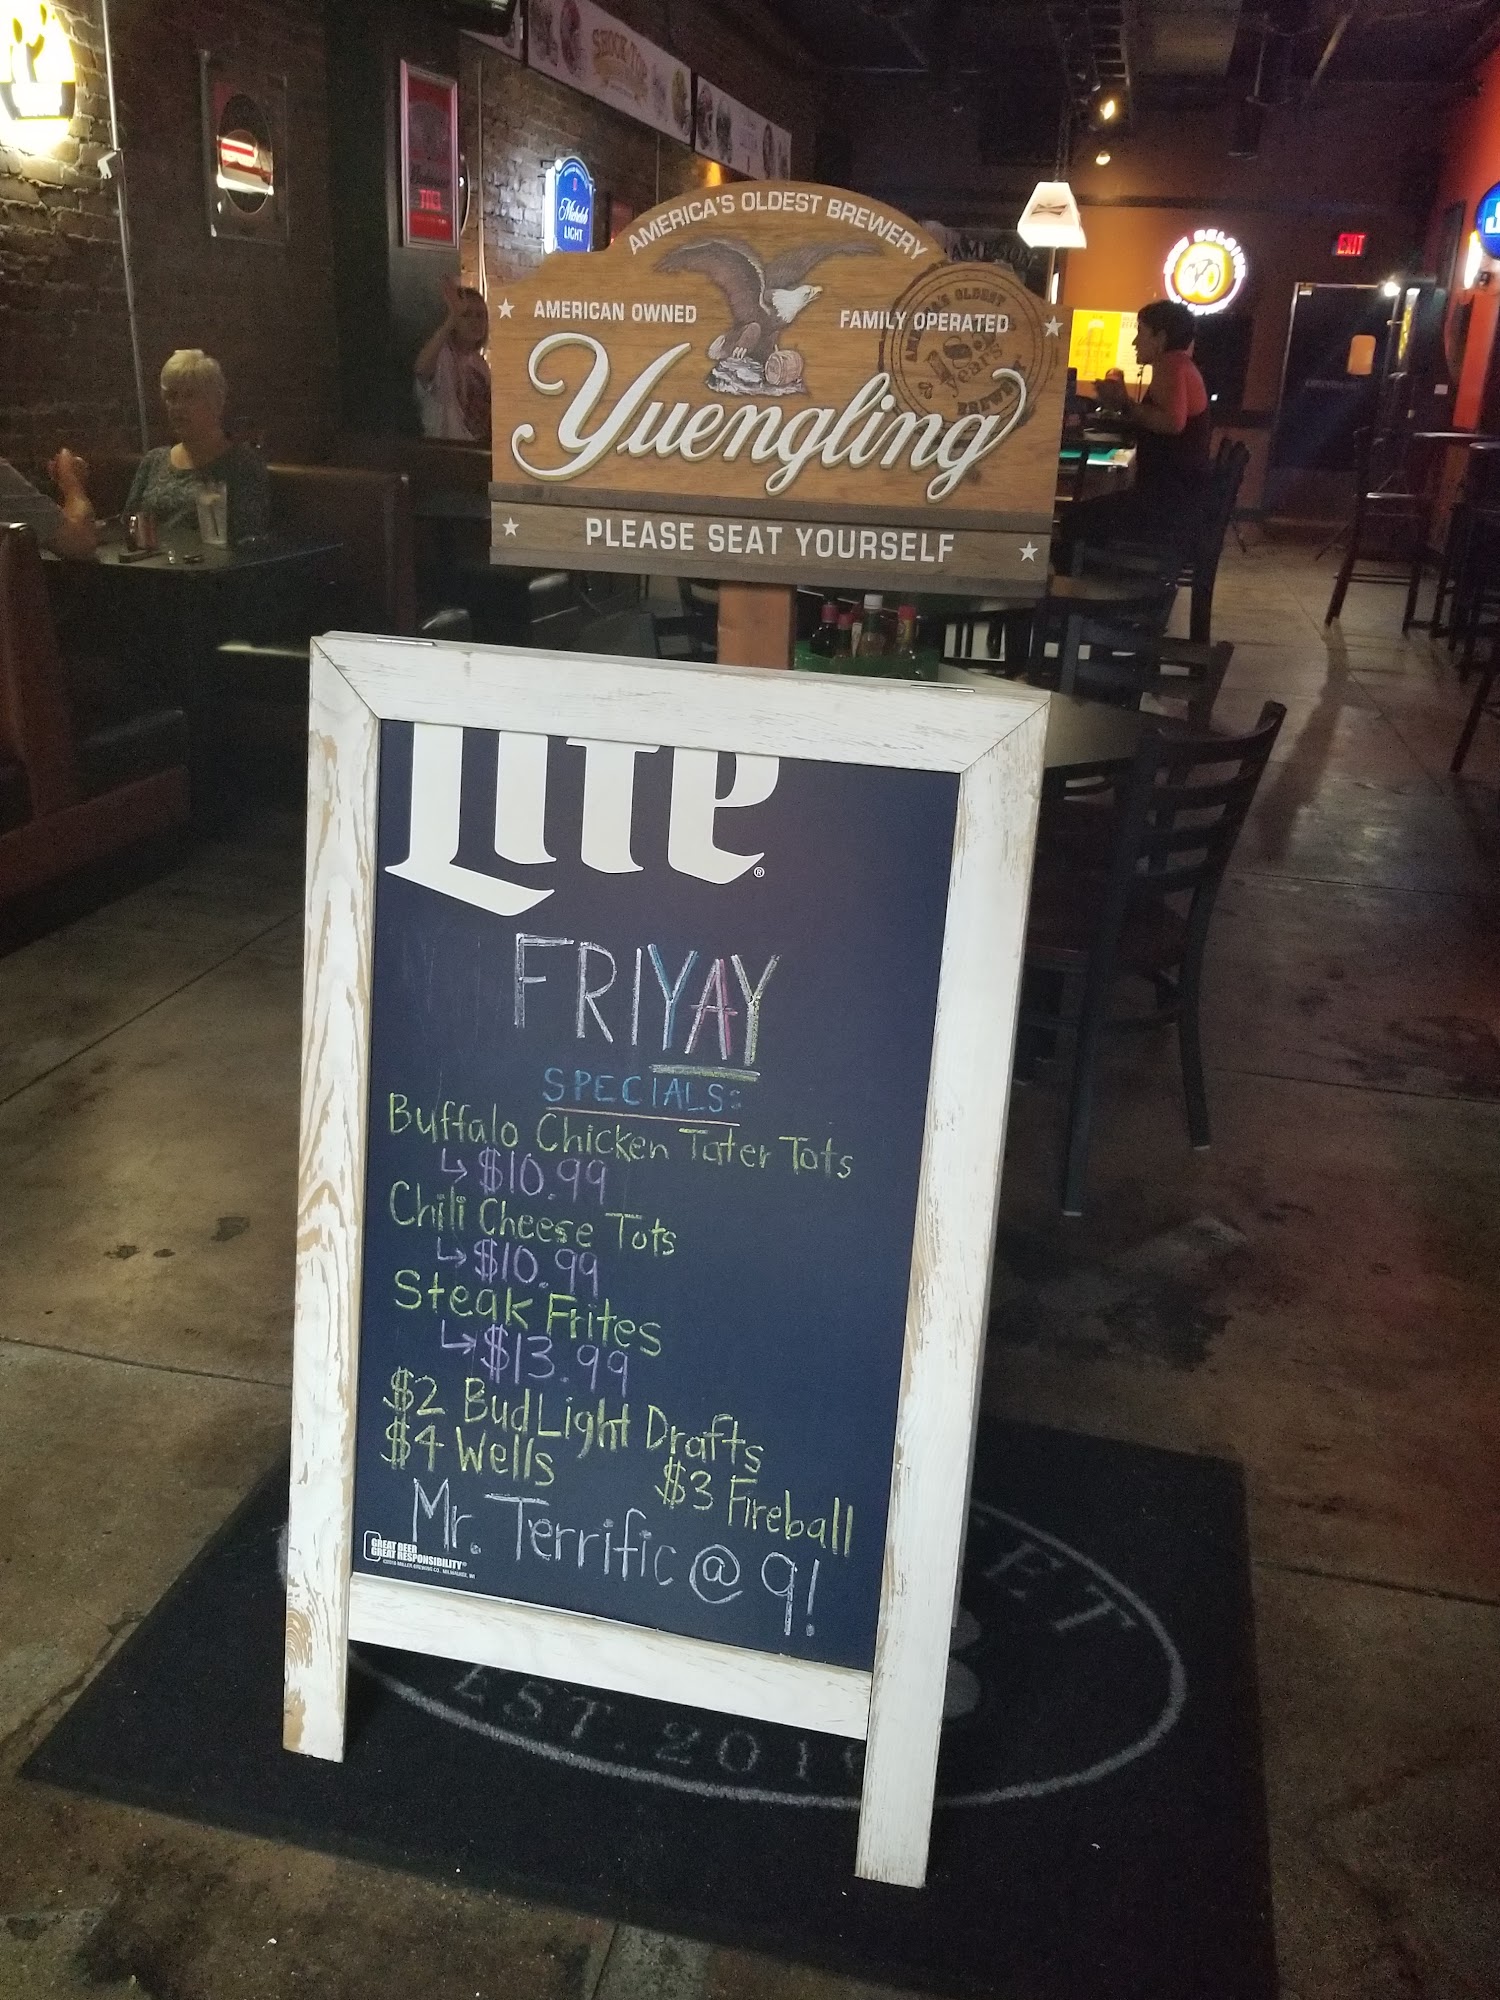 SHOCK TOP
Michelob
LIGHT
EXIT
AMERICA'S OLDEST BREWERY
AMERICAN OWNED
FAMILY OPERATED
Yuengling
PLEASE SEAT YOURSELF
Lite®
FRIYAY
SPECIALS:
Buffalo Chicken Tater Tots
↳ $10.99
Chili Cheese Tots
↳ $10.99
Steak Frites
↳ $13.99
$2 Bud Light Drafts
$4 Wells $3 Fireball
Mr. Terrific @ 9!
GREAT BEER
GREAT RESPONSIBILITY®
EST. 201